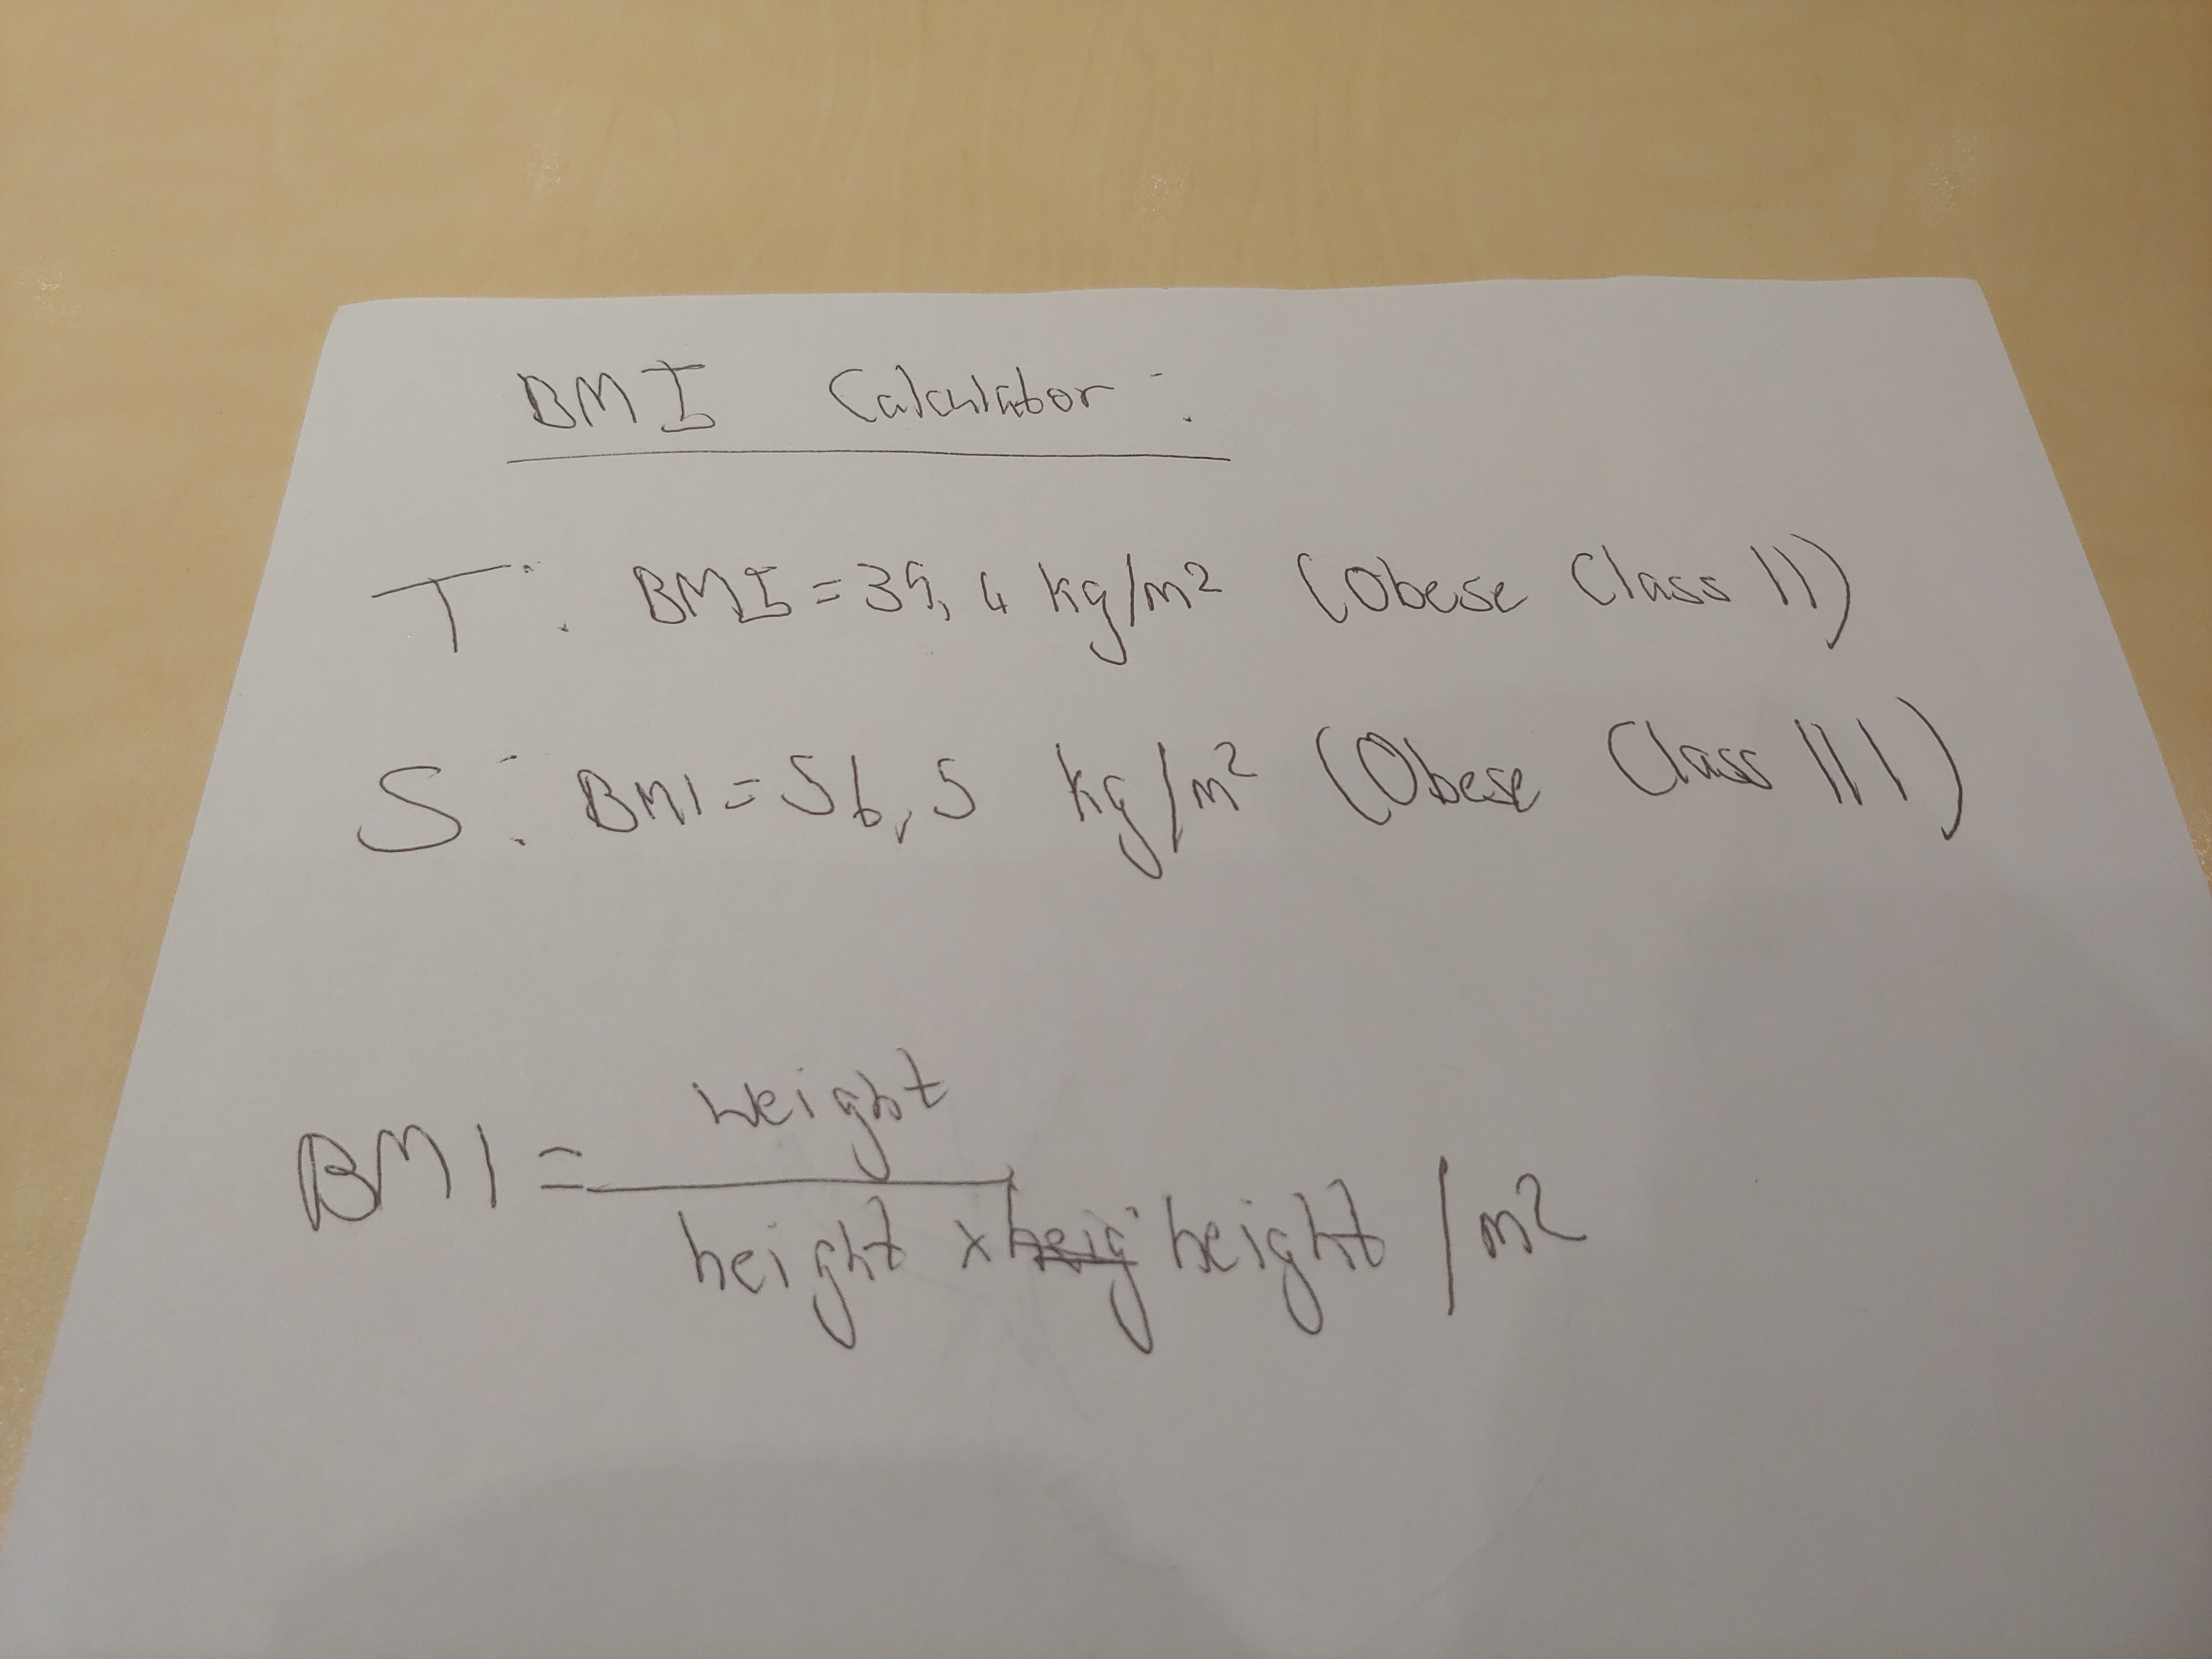 BMI Calculator:
T: BMI = 39,4 kg/m² (Obese Class II)
S: BMI = 56,5 kg/m² (Obese Class III)
weight
BMI =
height x heig height / m²